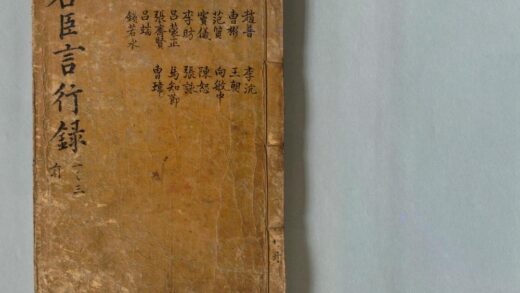 趙普 李沆
曹彬 王朝
范質 向敏中
竇儀 陳恕
李昉 張詠
呂蒙正 馬知節
張齊賢 曹瑋
呂端
錢若水
名臣言行録 一之三